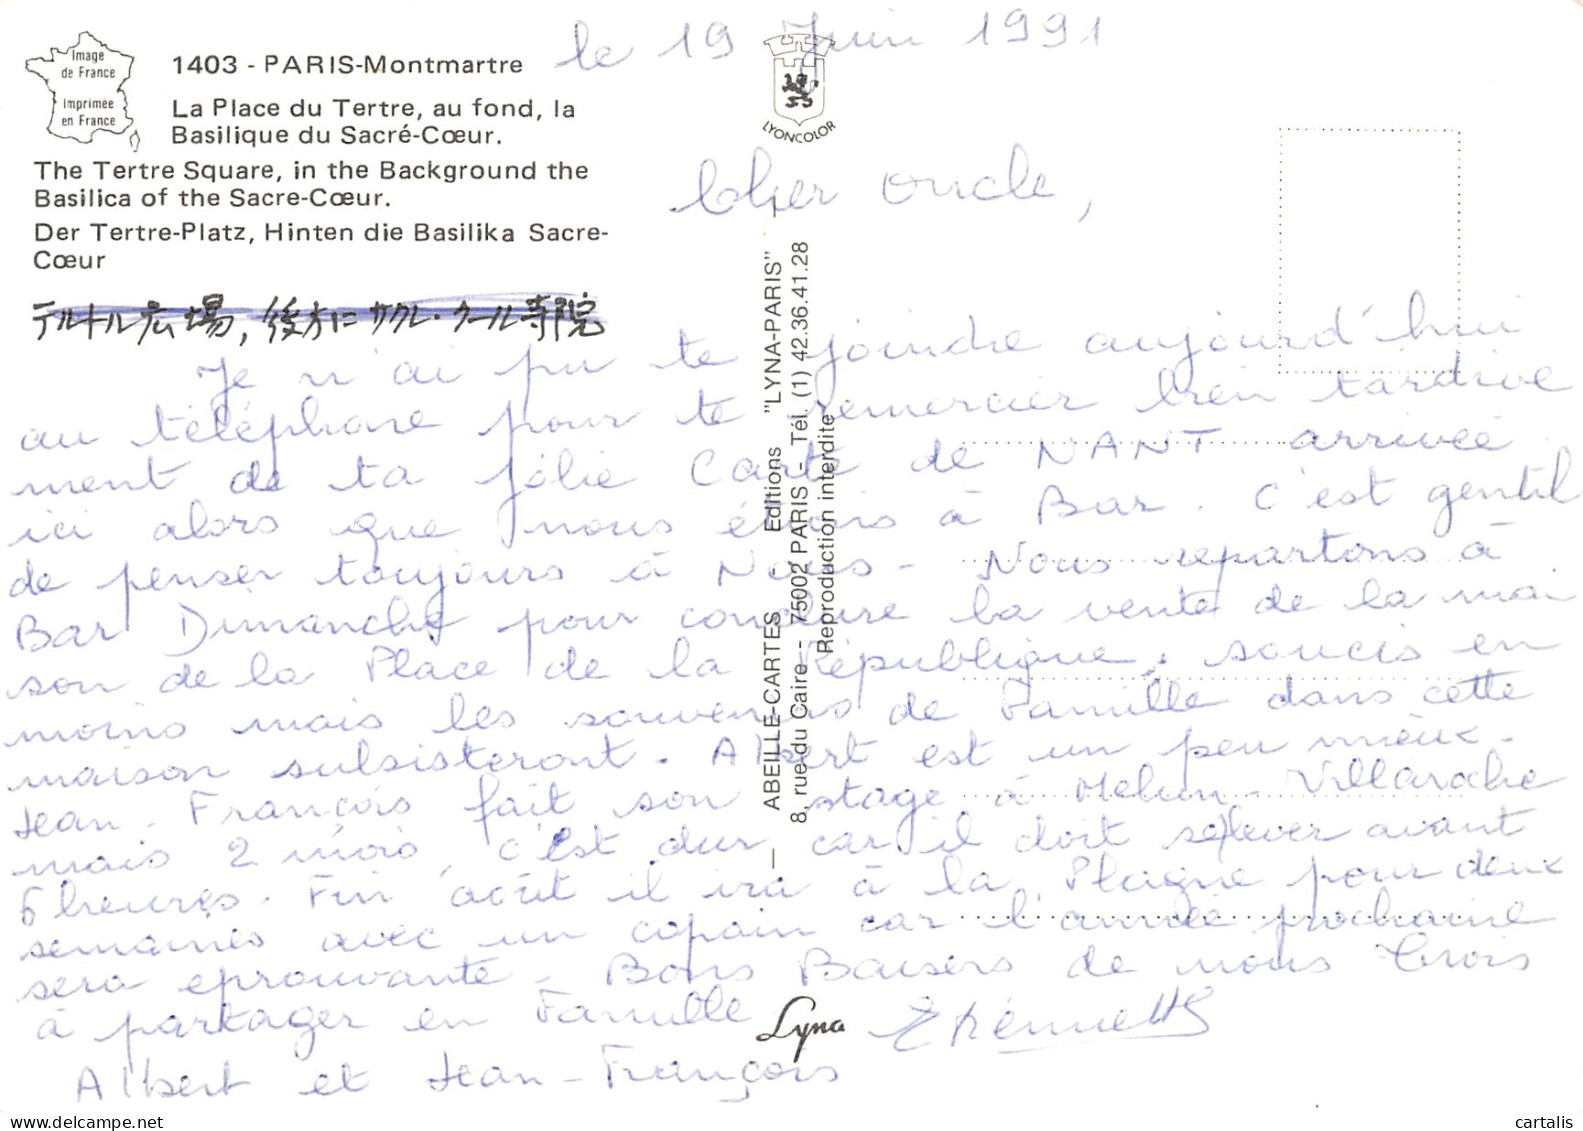 Image
de France
Imprimée
en France
1403 - PARIS-Montmartre
La Place du Tertre, au fond, la
Basilique du Sacré-Cœur.
The Tertre Square, in the Background the
Basilica of the Sacre-Cœur.
Der Tertre-Platz, Hinten die Basilika Sacre-
Cœur
テルトル広場, 後方にサクレ・クール寺院
LYONCOLOR
— ABEILLE-CARTES - Editions "LYNA-PARIS" —
8, rue du Caire - 75002 PARIS - Tél. (1) 42.36.41.28
Reproduction interdite
le 19 Juin 1991
Cher oncle,
Je n'ai pu te joindre aujourd'hui
au téléphone pour te remercier bien tardive
ment de ta jolie Carte de NANT arrivée
ici alors que nous étions à Bar. C'est gentil
de penser toujours à Nous - Nous repartons à
Bar Dimanche pour conclure la vente de la mai
son de la Place de la République, soucis en
moins mais les souvenirs de Famille dans cette
maison subsisteront. Albert est un peu mieux -
Jean-François fait son stage à Melun-Villaroche
mais 2 mois, c'est dur car il doit se lever avant
6 heures. Fin août il ira à la Plagne pour deux
semaines avec un copain car l'année prochaine
sera éprouvante - Bons Baisers de nous trois
à partager en Famille
Albert et Jean-François
Lyna
cartalis